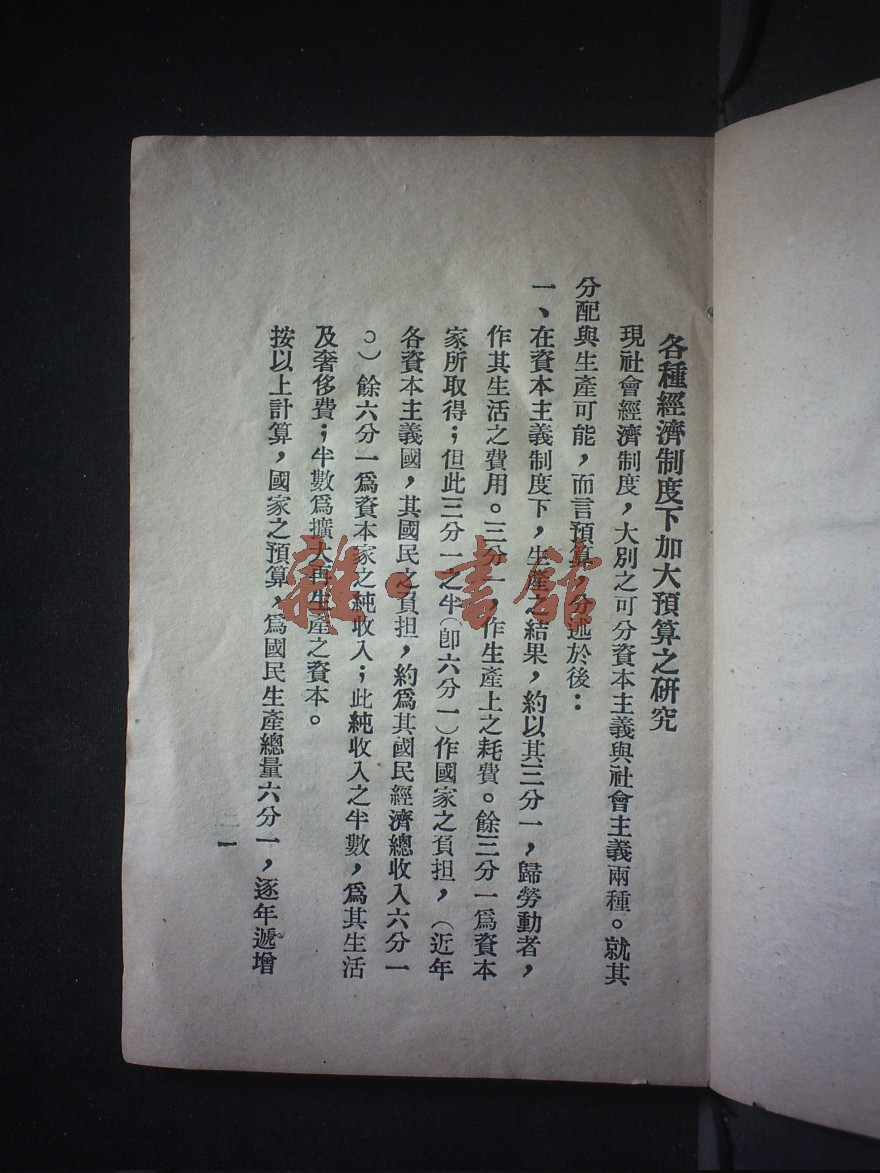 各種經濟制度下加大預算之研究
現社會經濟制度，大別之可分資本主義與社會主義兩種。就其
分配與生產可能，而言預算，分述於後：
一、在資本主義制度下，生產之結果，約以其三分一，歸勞動者，
作其生活之費用。三分一，作生產上之耗費。餘三分一爲資本
家所取得；但此三分一之半（卽六分一）作國家之負担，（近年
各資本主義國，其國民之負担，約爲其國民經濟總收入六分一
○）餘六分一爲資本家之純收入；此純收入之半數，爲其生活
及奢侈費；半數爲擴大再生產之資本。
按以上計算，國家之預算，爲國民生產總量六分一，逐年遞增
雜·書館